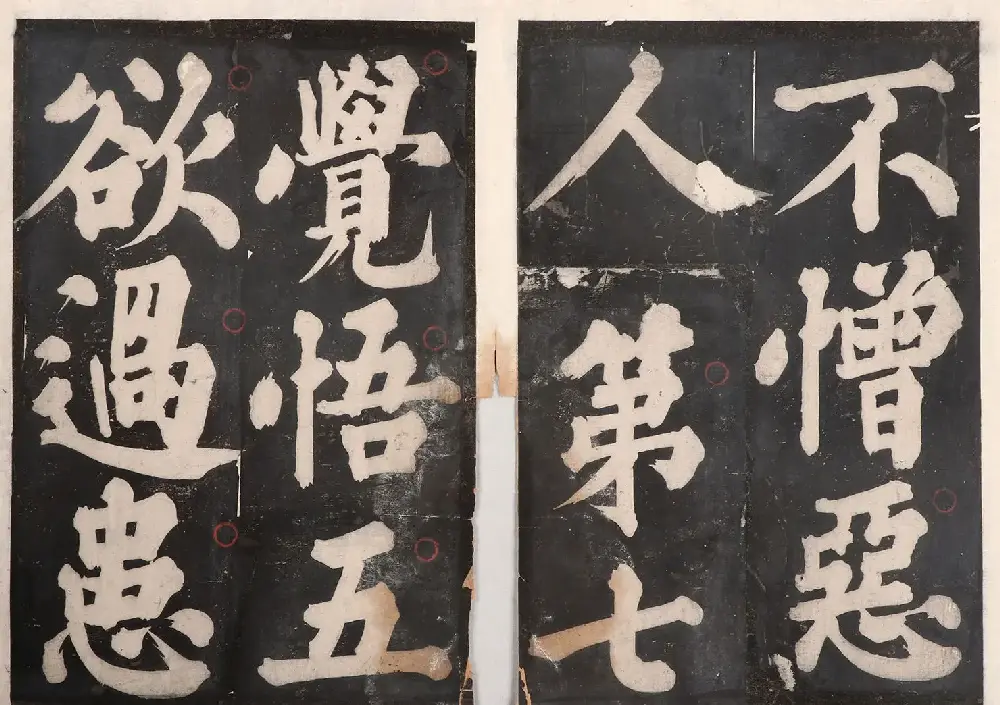 不憎惡
人第七
覺悟五
欲過患